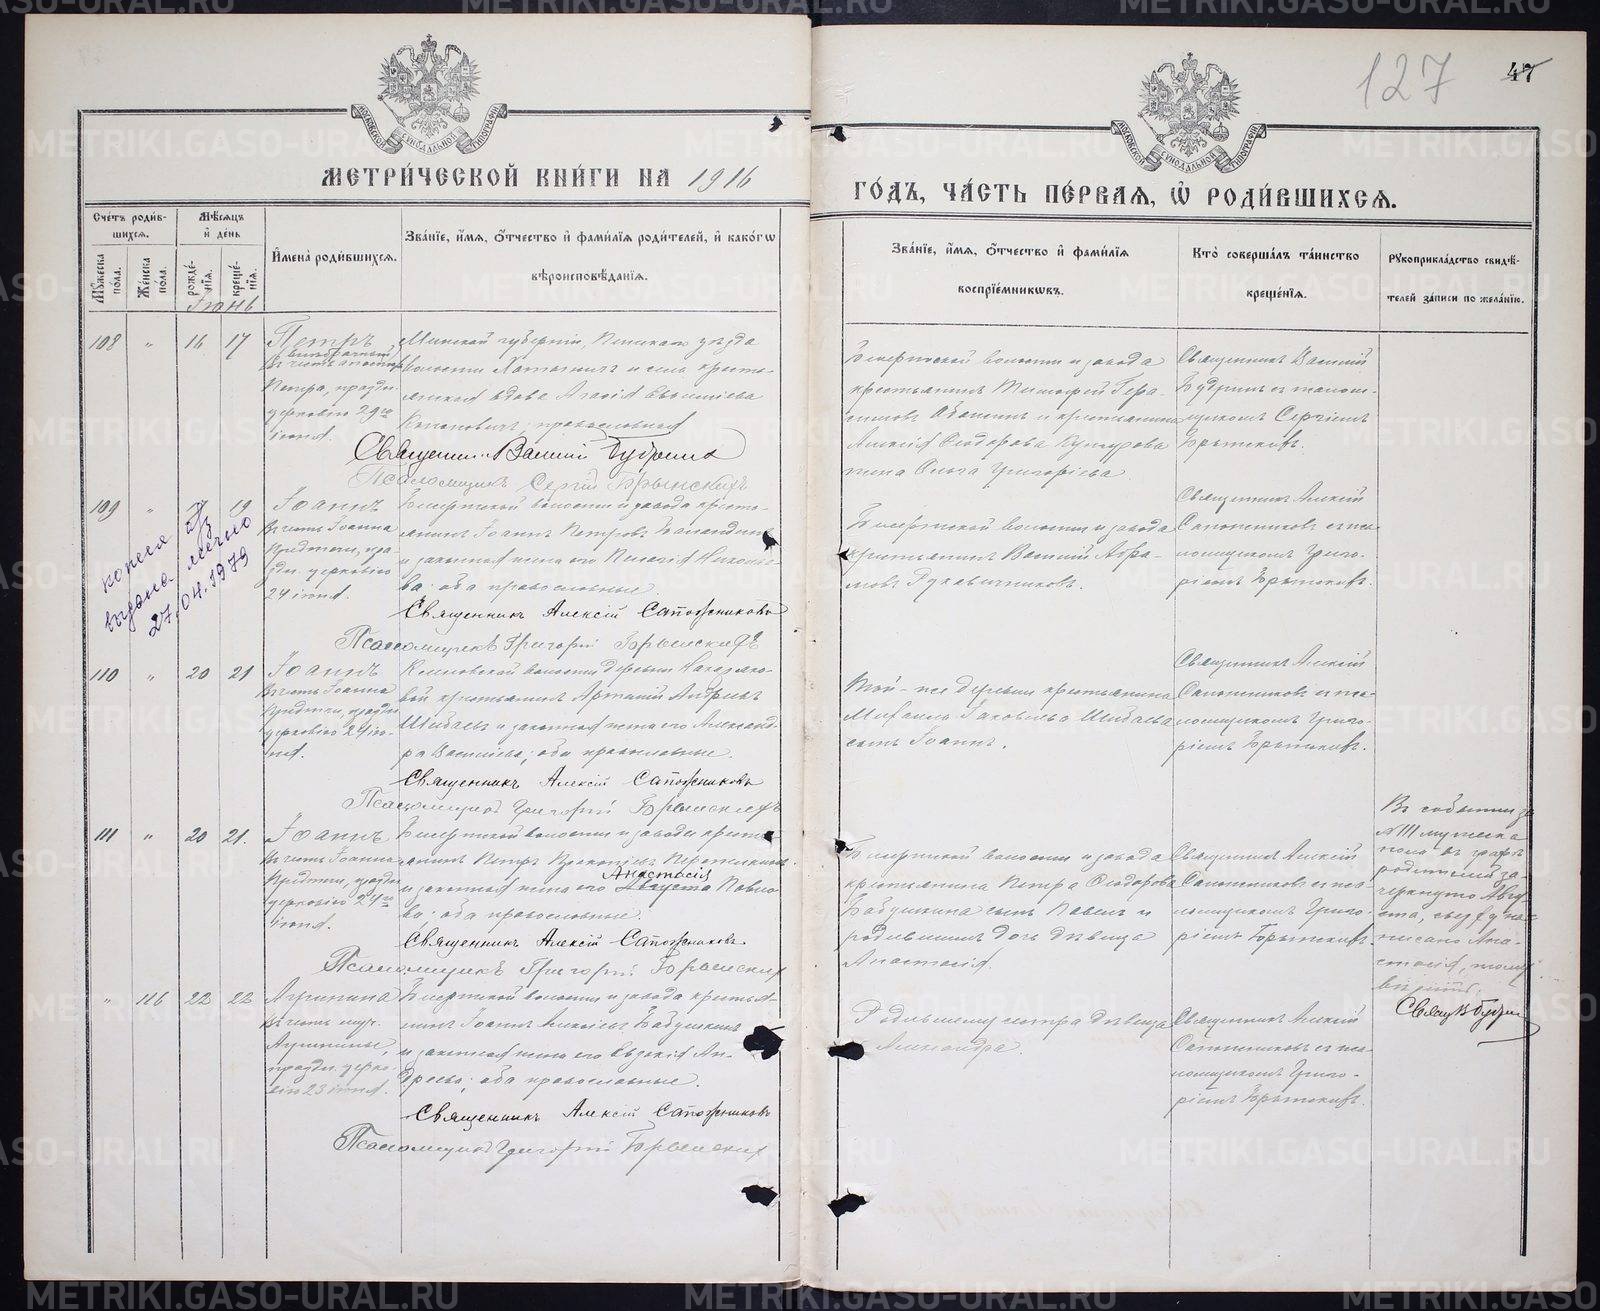 127
47
МЕТРИ́ЧЕСКОЙ КНИ́ГИ НА 1916
ГО́ДЪ, ЧА́СТЬ ПЕ́РВАЯ, Ѡ҆ РОДИ́ВШИХСЯ.
Сче́тъ роди́вшихся.
Мѣ́сяцъ и҆ де́нь
И҆мена̀ роди́вшихся.
Зва́нїе, и҆́мя, ѻ҆́тчество и҆ фами́лїя роди́телей, и҆ како́гѡ
вѣроисповѣ́данїя.
Му́жеска по́ла.
Же́нска по́ла.
рожде́нїя.
креще́нїя.
Зва́нїе, и҆́мя, ѻ҆́тчество и҆ фами́лїя
воспрїе́мникѡвъ.
Кто̀ соверша́лъ та́инство
креще́нїя.
Рꙋкоприкла́дство свидѣ́телей за́писи по жела́нїю.
Іюнь
108 " 16 17
Петръ
внебрачный,
въ честь апостола
Петра, праздн.
церковію 29го
іюня.
Минской губерніи, Пинскаго уѣзда
волости Хотыничъ и села кресть-
янская вдова Агаѳія
православная
Священникъ Василій Будринъ
Псаломщикъ Сергій Брынскихъ
волости и завода
крестьянинъ Тимофей Гера-
симовъ и крестьянина
Алексія Ѳеодорова
жена Ольга Григоріева
Священникъ Василій
Будринъ съ псалом-
щикомъ Сергіемъ
109 " 17 19
Іоаннъ
въ честь Іоанна
Предтечи, пра-
здн. церковію
24 іюня.
волости и завода кресть-
янинъ Іоаннъ Петровъ
и законная жена его Пелагія Николае-
ва; оба православные.
Священникъ Алексій Сапожниковъ
Псаломщикъ Григорій
волости и завода
крестьянинъ Василій Авра-
мовъ Рукавичниковъ.
Священникъ Алексій
Сапожниковъ съ пса-
ломщикомъ Григо-
ріемъ
копия
выдана
27.04.1979
110 " 20 21
Іоаннъ
въ честь Іоанна
Предтечи, праздн.
церковію 24 ію-
ня.
волости деревни
крестьянинъ Артемій Андреевъ
Шибаевъ и законная жена его Александ-
ра Васильева; оба православные.
Священникъ Алексій Сапожниковъ
Псаломщикъ Григорій
Той-же деревни крестьянина
Михаила Іаковлева Шибаева
сынъ Іоаннъ.
Священникъ Алексій
Сапожниковъ съ пса-
ломщикомъ Григо-
ріемъ
111 " 20 21.
Іоаннъ
въ честь Іоанна
Предтечи, праздн.
церковію 24го
іюня.
волости и завода кресть-
янинъ Петръ Прокопіевъ
Анастасія
и законная жена его Августа Павло-
ва; оба православные.
Священникъ Алексій Сапожниковъ
Псаломщикъ Григорій
волости и завода
крестьянина Петра Ѳеодорова
Бабушкина сынъ Павелъ и
родившимъ дочь дѣвица
Анастасія.
Священникъ Алексій
Сапожниковъ съ пса-
ломщикомъ Григо-
ріемъ
Въ событіи за
№ 111 мужска
пола въ графѣ
родителей за-
черкнуто Авгу-
ста, сверху на-
писано Ана-
стасія, тому
вѣрить.
Свящ. В. Будринъ
" 116 22 22
Агрипина
въ честь муч.
Агрипины,
праздн. церко-
вію 23 іюня.
волости и завода крестья-
нинъ Іоаннъ Алексіевъ Бабушкинъ
и законная жена его Евдокія Ан-
дреева; оба православные.
Священникъ Алексій Сапожниковъ
Псаломщикъ Григорій
Родившему сестра дѣвица
Александра.
Священникъ Алексій
Сапожниковъ съ пса-
ломщикомъ Григо-
ріемъ
METRIKI.GASO-URAL.RU